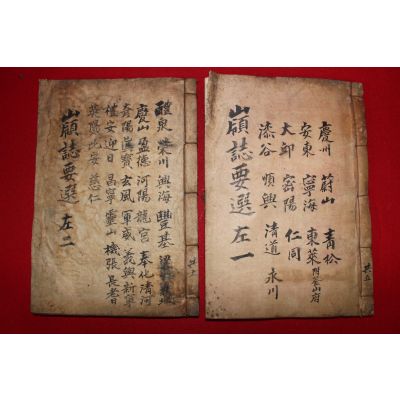 慶州 蔚山 青松
安東 寧海 東萊
大邱 密陽 仁同
漆谷 順興 清道 永川
嶺誌要選 左一
共五
醴泉 榮川 興海 豐基
慶山 盈德 河陽 龍宮 奉化 清河
玄風 軍威 義興 新寧
迎日 昌寧 靈山 機張 長耆
英陽 比安 慈仁
嶺誌要選 左二